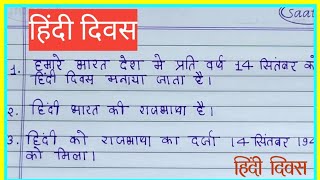 Saat
हिंदी दिवस
1. हमारे भारत देश में प्रति वर्ष 14 सितंबर को
हिंदी दिवस मनाया जाता है।
2. हिंदी भारत की राजभाषा है।
3. हिंदी को राजभाषा का दर्जा 14 सितंबर 194
को मिला।
हिंदी दिवस